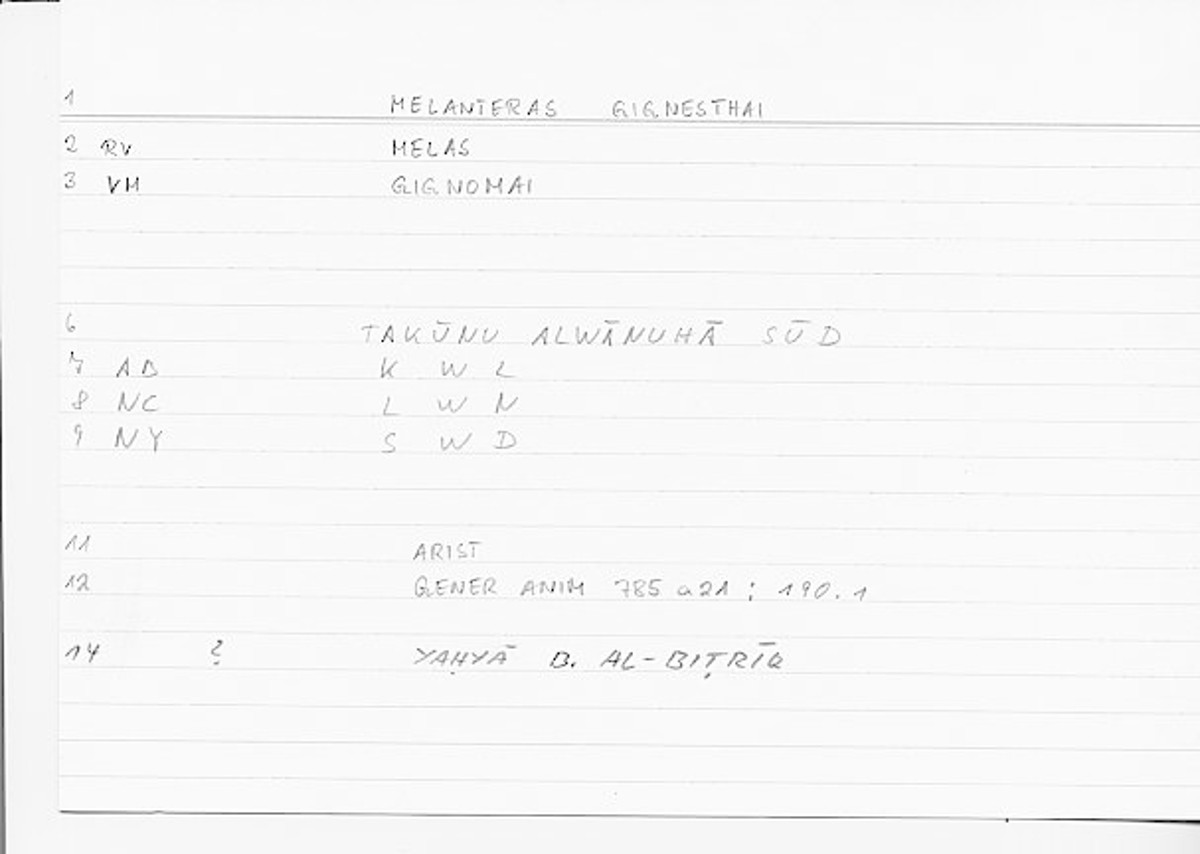 1 MELANTERAS GIGNESTHAI
2 RV MELAS
3 VM GIGNOMAI
6 TAKŪNU ALWĀNUHĀ SŪD
7 AB K W L
8 NC L W N
9 NY S W D
11 ARIST
12 GENER ANIM 785 a21 ; 190.1
14 ? YAḤYĀ B. AL-BIṬRĪQ